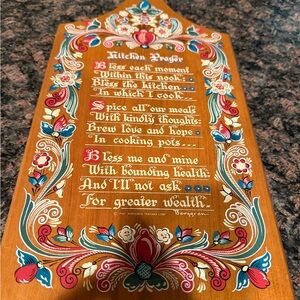 Kitchen Prayer
Bless each moment
Within this nook:
Bless the kitchen
In which I cook...
Spice all our meals
With kindly thoughts:
Brew love and hope
In cooking pots...
Bless me and mine
With bounding health:
And I'll not ask
For greater wealth.
Berggren